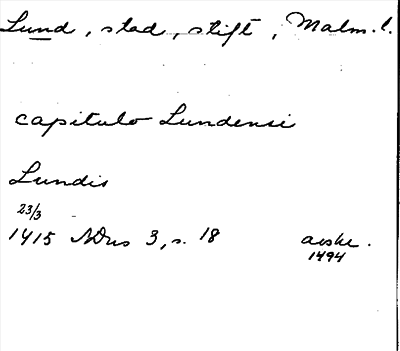 Lund, stad, stift, Malm. l.
capitulo Lundensi
Lundis
23/3
1415 NDus 3, s. 18 avskr.
1494